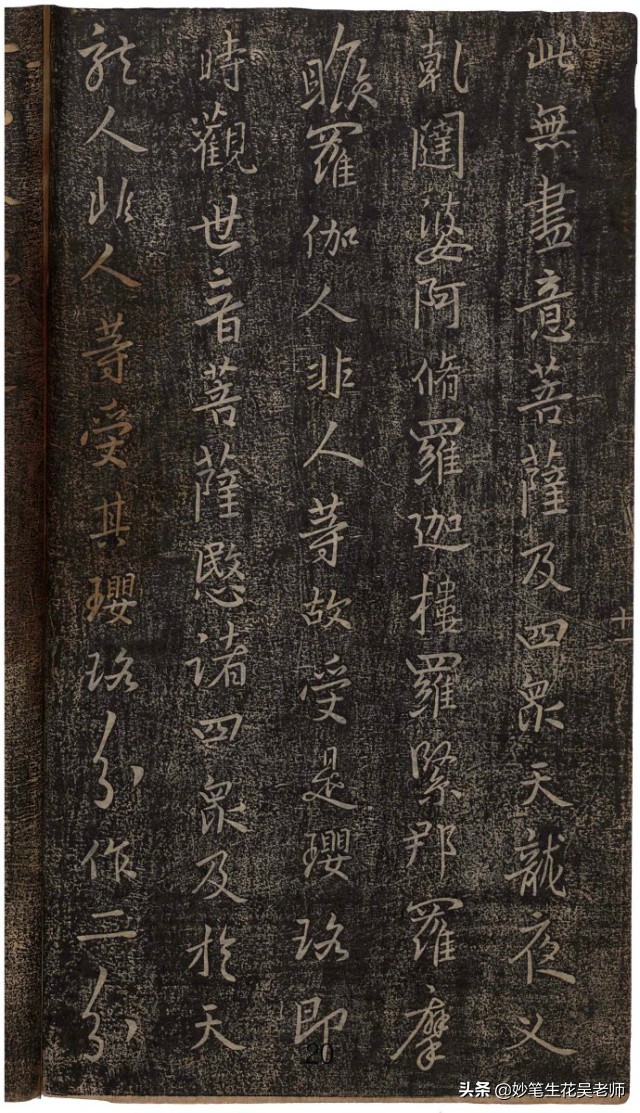 此無盡意菩薩及四衆天龍夜乂
乹闥婆阿脩羅迦樓羅緊那羅摩
睺羅伽人非人等故受是瓔珞即
時觀世音菩薩愍諸四衆及於天
龍人非人等受其瓔珞分作二分
十一
20
头条 @妙笔生花吴老师